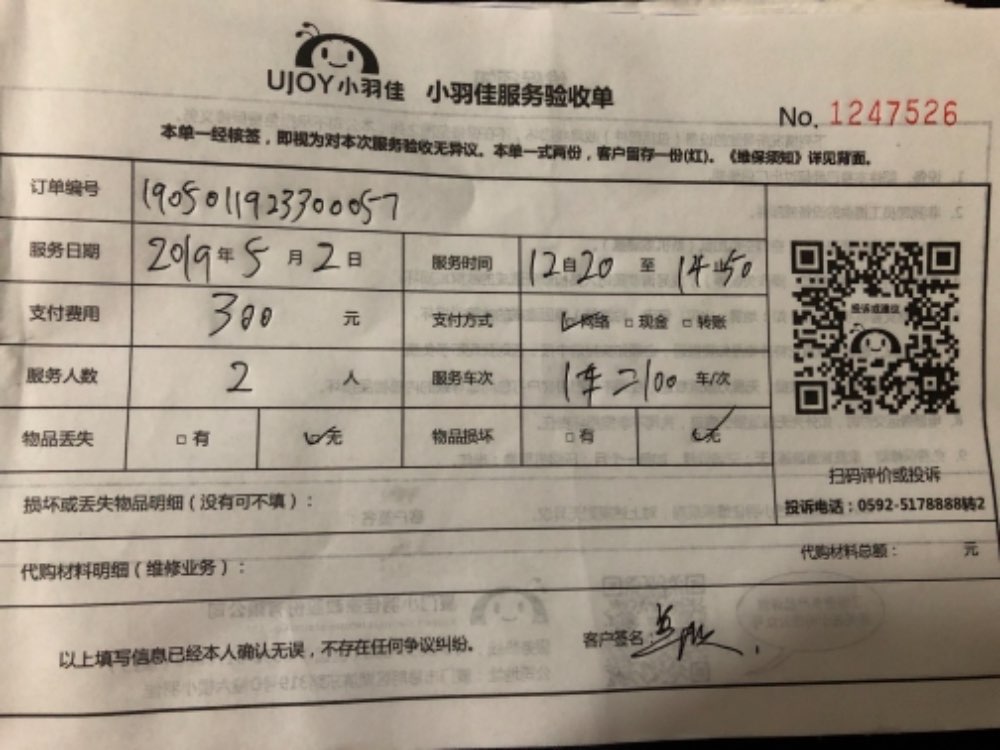 UJOY小羽佳 小羽佳服务验收单
No. 1247526
本单一经核签，即视为对本次服务验收无异议。本单一式两份，客户留存一份(红)。《维保须知》详见背面。
订单编号 1905011923300057
服务日期 2019年5月2日 服务时间 12自20至14止50
支付费用 300 元 支付方式 网络 现金 转账
服务人数 2 人 服务车次 车/次
物品丢失 有 无 物品损坏 有 无
投诉或建议
扫码评价或投诉
投诉电话：0592-5178888转2
损坏或丢失物品明细（没有可不填）：
代购材料明细（维修业务）： 代购材料总额： 元
以上填写信息已经本人确认无误，不存在任何争议纠纷。 客户签名：